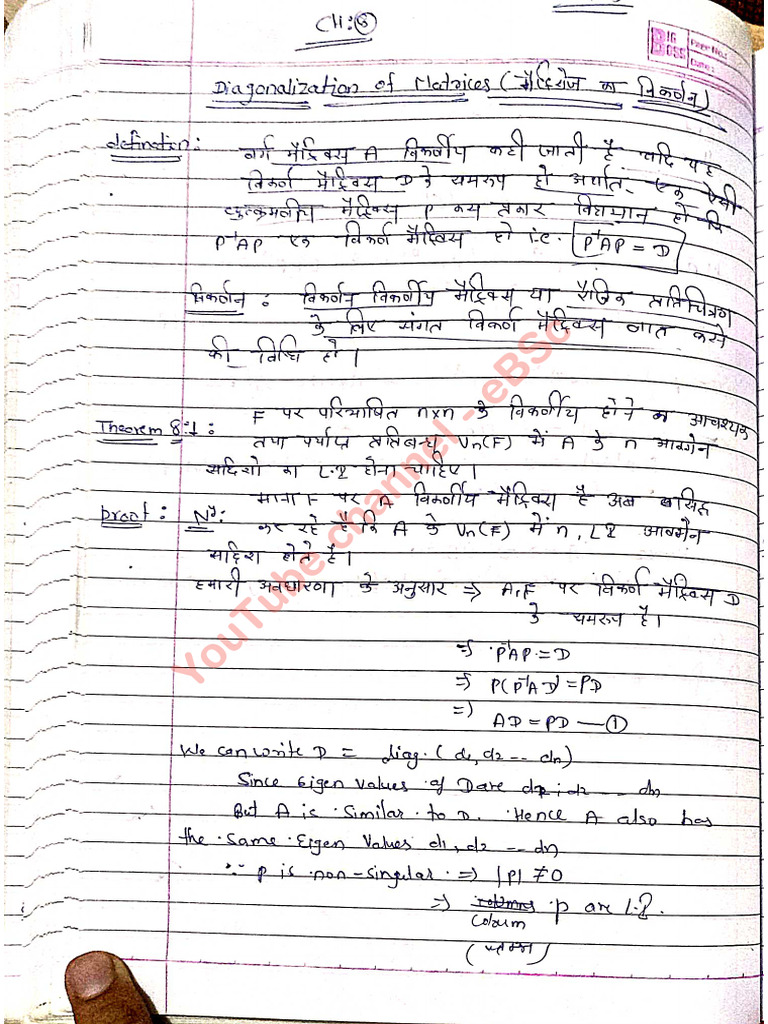 CH: 8
BIG BOSS Page No.:
Date:
Diagonalization of Matrices (मैट्रिसेज का विकर्णन)
definition: वर्ग मैट्रिक्स A विकर्णीय कही जाती है यदि यह
विकर्ण मैट्रिक्स D के समरूप हो अर्थात् एक ऐसी
व्युत्क्रमणीय मैट्रिक्स P इस प्रकार विद्यमान हो कि
P⁻¹AP एक विकर्ण मैट्रिक्स हो i.e. P⁻¹AP = D
विकर्णन : विकर्णन विकर्णीय मैट्रिक्स या रैखिक प्रतिचित्रण
के लिए संगत विकर्ण मैट्रिक्स ज्ञात करने
की विधि है।
Theorem 8.1: F पर परिभाषित n×n के विकर्णीय होने का आवश्यक
तथा पर्याप्त प्रतिबन्ध Vn(F) में A के n आइगेन
सदिशों का L.I होना चाहिए।
Proof: Ny: माना F पर A विकर्णीय मैट्रिक्स है अब सिद्ध
कर रहे है कि A के Vn(F) में n, L.I आइगेन
सदिश होते है।
हमारी अवधारणा के अनुसार ⇒ A, F पर विकर्ण मैट्रिक्स D
के समरूप है।
⇒ P⁻¹AP = D
⇒ P(P⁻¹AD) = PD
⇒ AD = PD — ①
We can write D = diag. (d1, d2 -- dn)
Since Eigen values of D are d1, d2 -- dn
But A is similar to D. Hence A also has
the same Eigen Values d1, d2 -- dn
∵ P is non-singular ⇒ |P| ≠ 0
⇒ P are L.I.
Colum
(स्तम्भ)
YouTube channel - eBSc